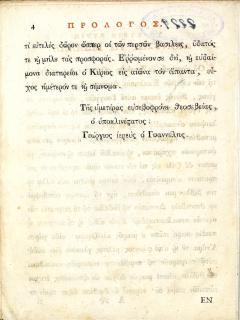 4 ΠΡΟΛΟΓΟΣ.
τὶ εὐτελὲς δῶρον ὥσπερ οἱ τῶν περσῶν βασιλεῖς, ὕδατός
τε ἢ μῆλα τὰς προσφοράς. Ἐῤῥωμένον σε διὸ, ἢ εὐδαί-
μονα διατηρείοι ὁ Κύριος εἰς αἰῶνα τὸν ἅπαντα,
χος ἡμέτερόν τε ἢ σέμνωμα.
Τῆς ὑμετέρας εὐσεβόφρονος Θεοσεβείας,
ὁ ὑποκλινέστατος:
Γεώργιος ἱερεὺς ὁ Γοαννίλης.
ΕΝ